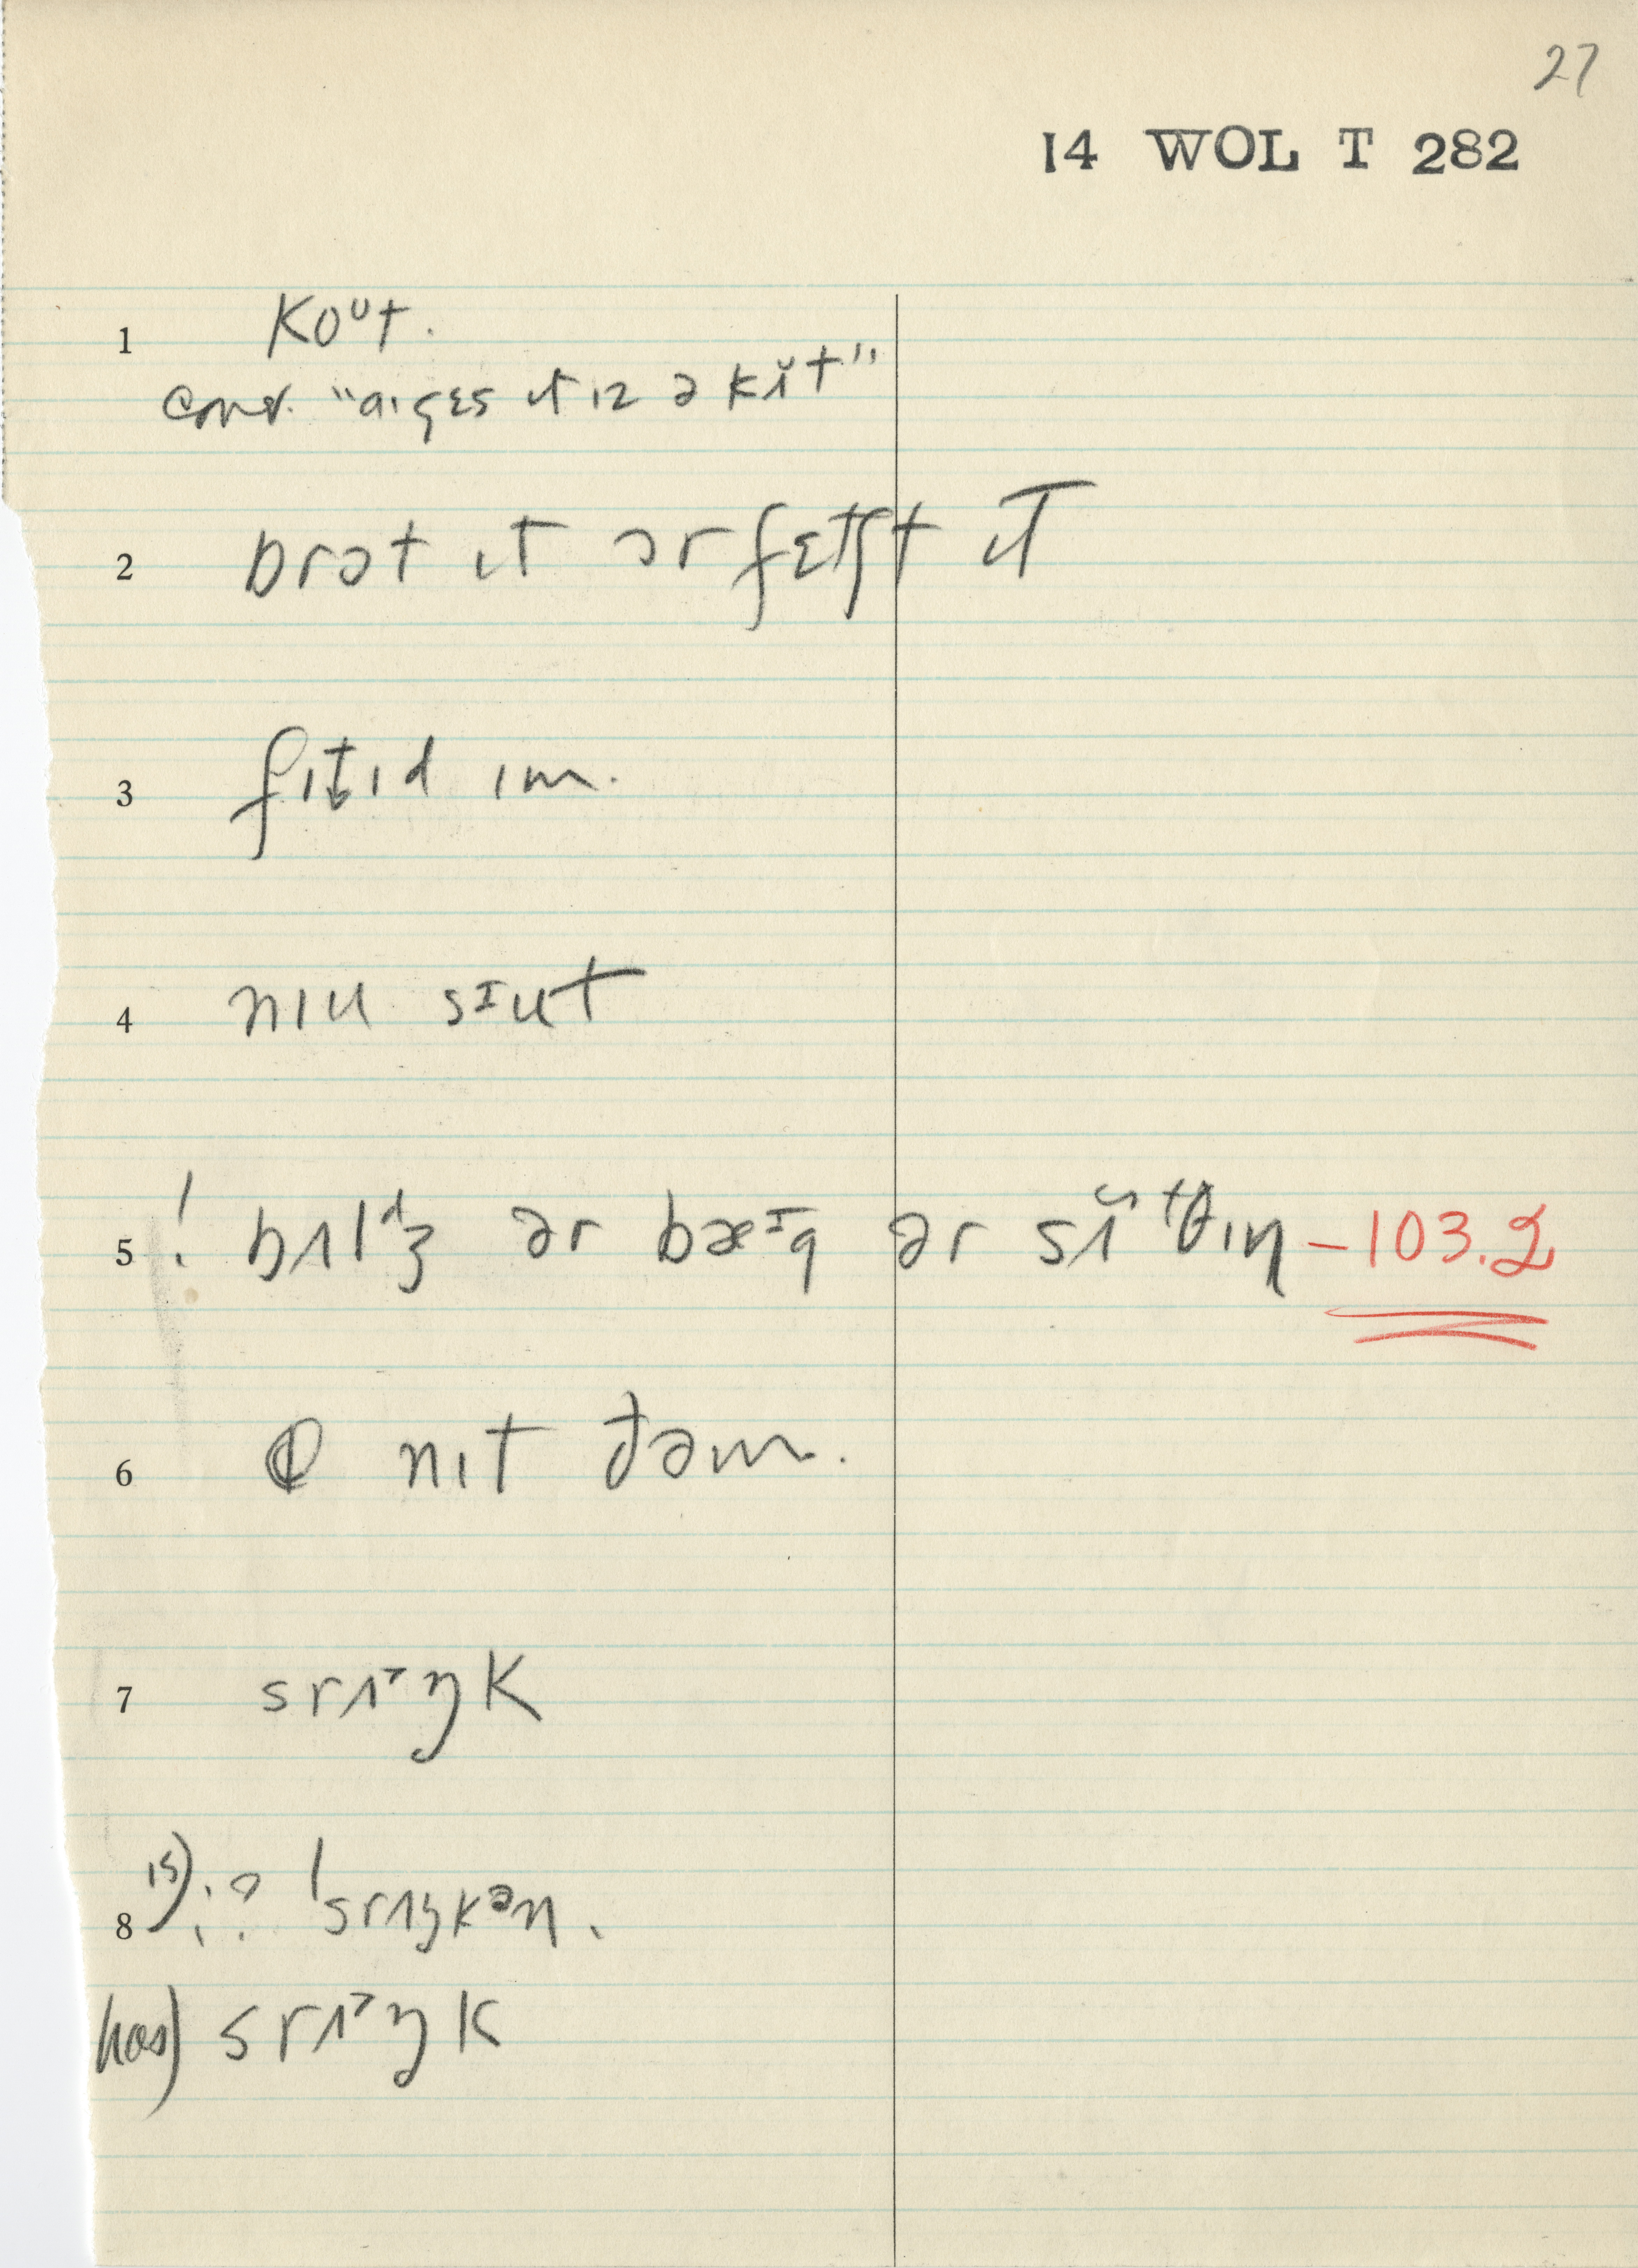 27
14 WOL T 282
1 koᶷt.
conv. "aɪ gɛs ɪt ɪz ə kɨ̆t"
2 brɔt ɪt ɔr fɛtʃt ɪt
3 fɪt̬ɪd ɪm.
4 nɪu sɪut
5 ! bʌlᵈʒ ər bæᶦg ər sʌ̆ᵗθɪŋ – 103.2
6 nɪt ðəm.
7 srʌ˃ŋk
8 is) ¡? ˈsrʌŋkᵊn.
has) srʌ˃ŋk